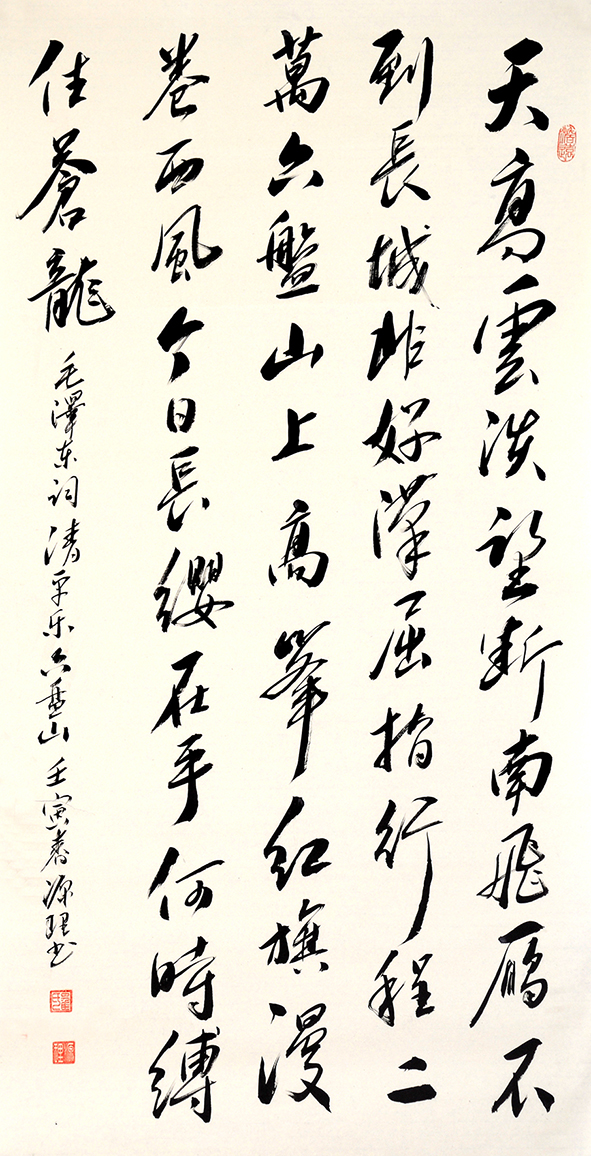 天高雲淡望断南飛雁不
到長城非好漢屈指行程二
萬六盤山上高峯紅旗漫
卷西風今日長纓在手何時縛
住蒼龍
毛澤东词清平乐六盘山壬寅春源理书